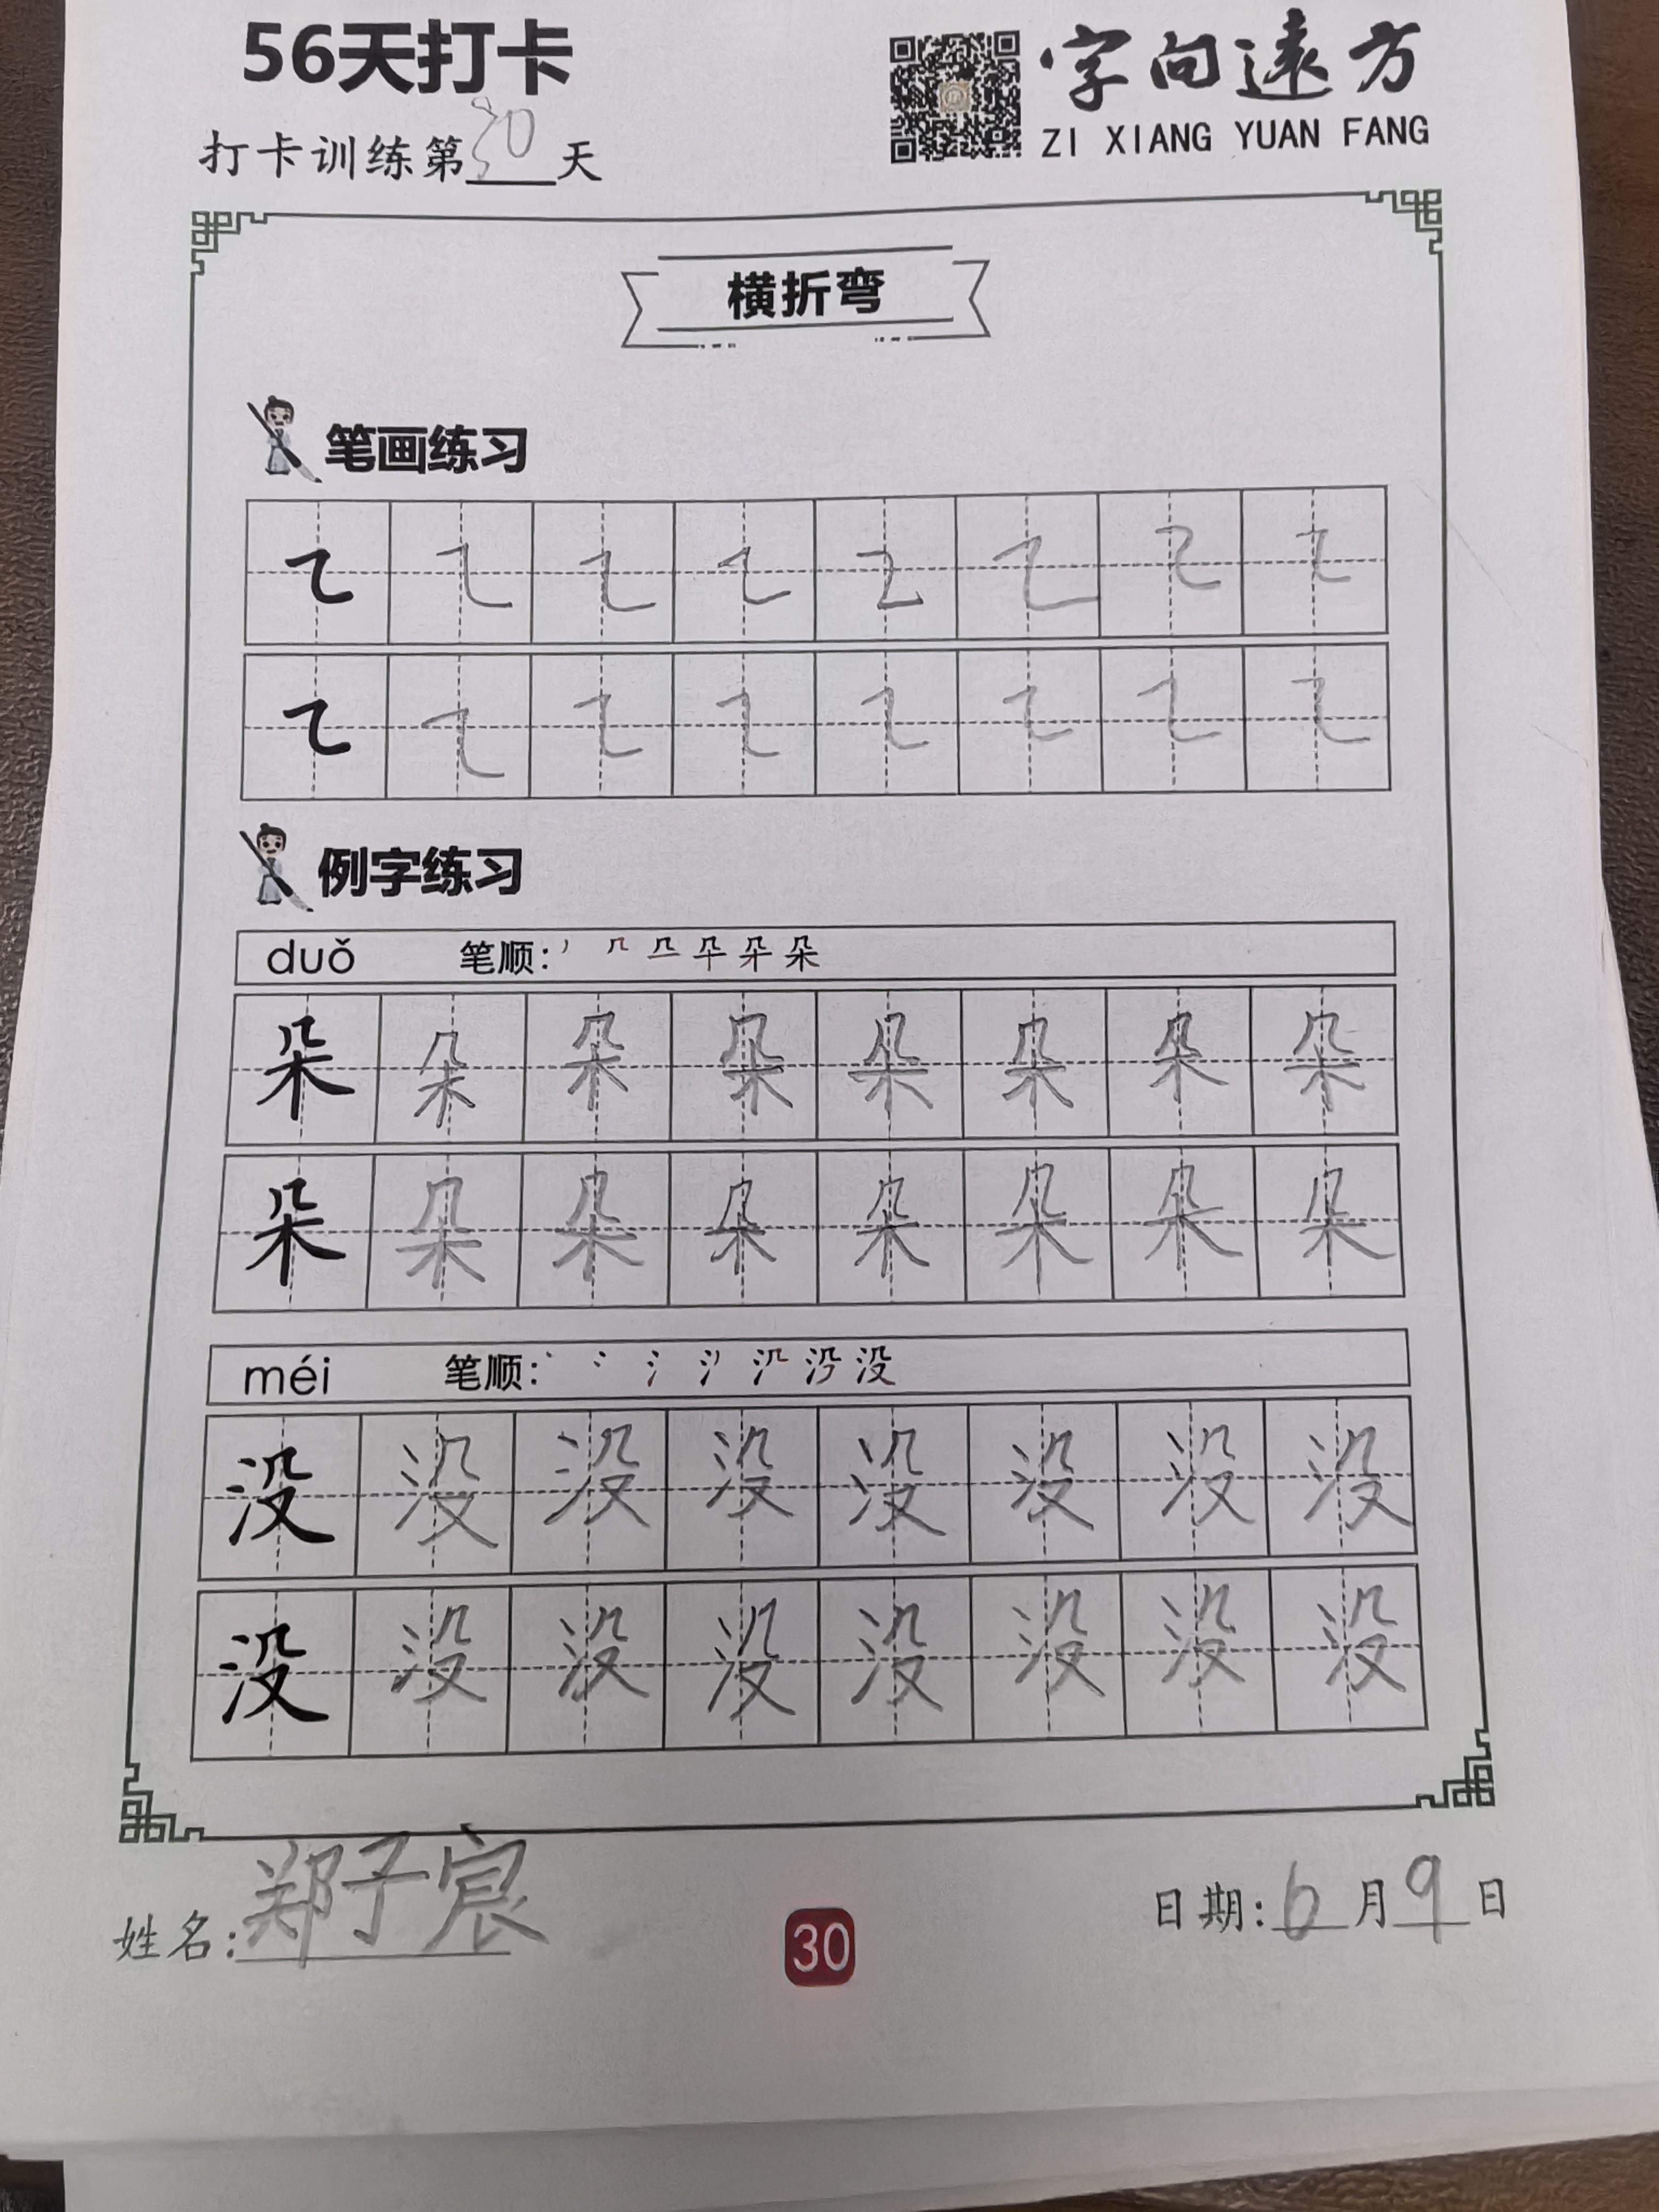 56天打卡
字向遠方
ZI XIANG YUAN FANG
打卡训练第30天
横折弯
笔画练习
㇍ ㇍ ㇍ ㇍ ㇍ ㇍ ㇍ ㇍
㇍ ㇍ ㇍ ㇍ ㇍ ㇍ ㇍ ㇍
例字练习
duǒ 笔顺:
朵 朵 朵 朵 朵 朵 朵 朵
朵 朵 朵 朵 朵 朵 朵 朵
méi 笔顺:
没 没 没 没 没 没 没 没
没 没 没 没 没 没 没 没
姓名:郑子宸
30
日期:6月9日